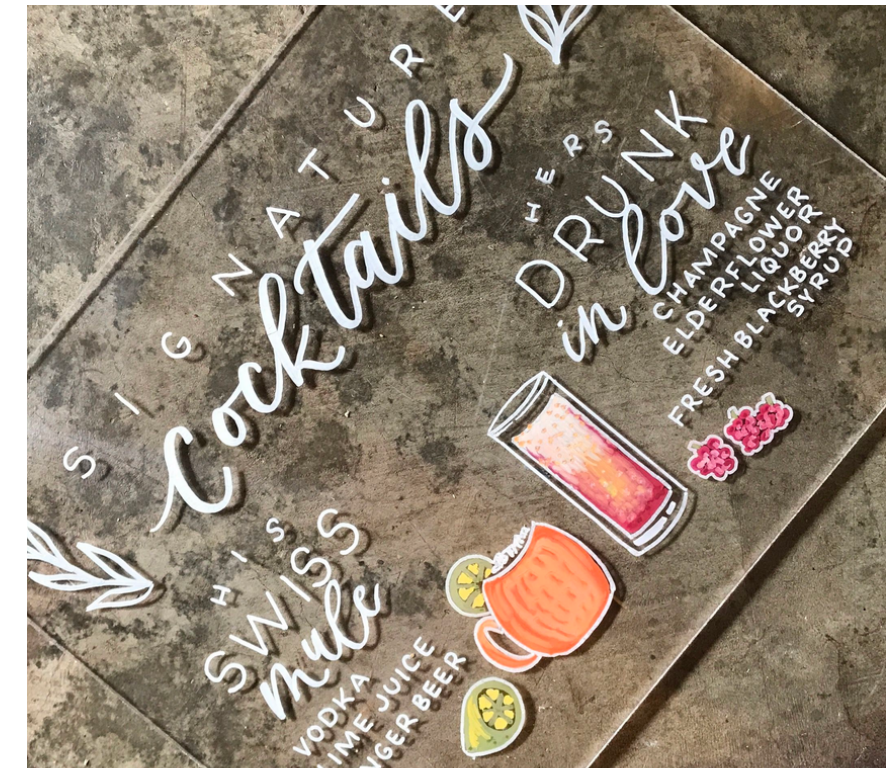 SIGNATURE
Cocktails
HIS
SWISS
mule
VODKA
LIME JUICE
NGER BEER
HERS
DRUNK
in love
CHAMPAGNE
ELDERFLOWER
LIQUOR
FRESH BLACKBERRY
SYRUP